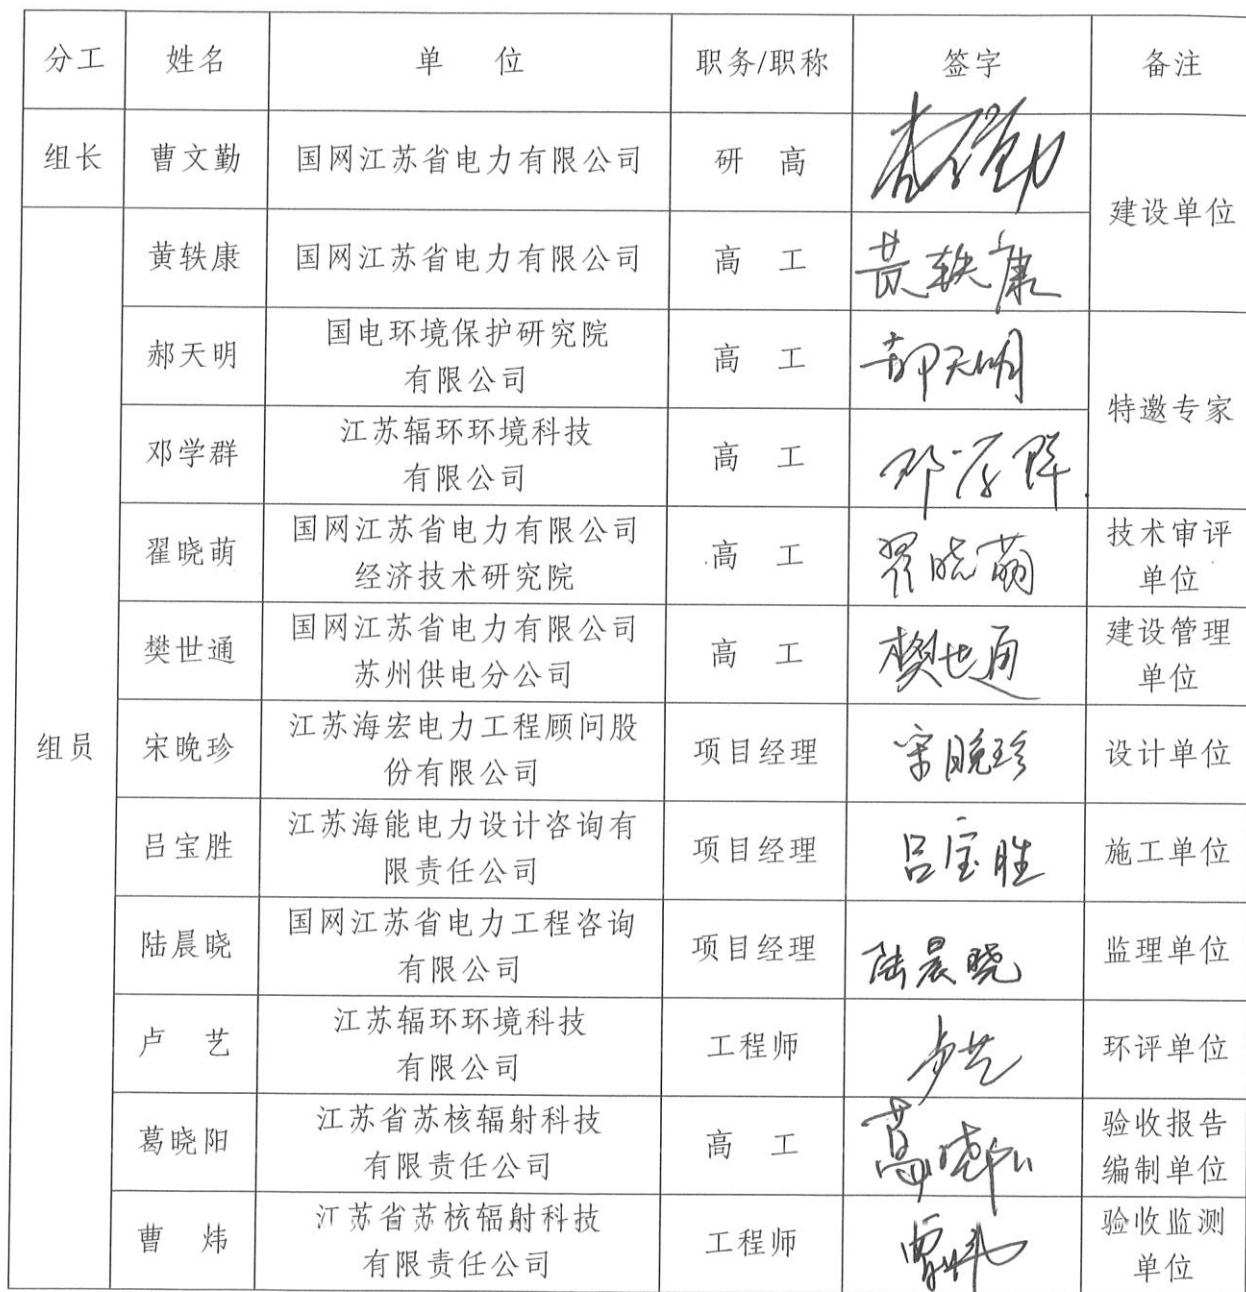 分工 姓名 单 位 职务/职称 签字 备注
组长 曹文勤 国网江苏省电力有限公司 研 高 曹文勤 建设单位
组员 黄轶康 国网江苏省电力有限公司 高 工 黄轶康
郝天明 国电环境保护研究院
有限公司 高 工 郝天明 特邀专家
邓学群 江苏辐环环境科技
有限公司 高 工 邓学群
翟晓萌 国网江苏省电力有限公司
经济技术研究院 高 工 翟晓萌 技术审评
单位
樊世通 国网江苏省电力有限公司
苏州供电分公司 高 工 樊世通 建设管理
单位
宋晚珍 江苏海宏电力工程顾问股
份有限公司 项目经理 宋晚珍 设计单位
吕宝胜 江苏海能电力设计咨询有
限责任公司 项目经理 吕宝胜 施工单位
陆晨晓 国网江苏省电力工程咨询
有限公司 项目经理 陆晨晓 监理单位
卢 艺 江苏辐环环境科技
有限公司 工程师 卢艺 环评单位
葛晓阳 江苏省苏核辐射科技
有限责任公司 高 工 葛晓阳 验收报告
编制单位
曹 炜 江苏省苏核辐射科技
有限责任公司 工程师 曹炜 验收监测
单位